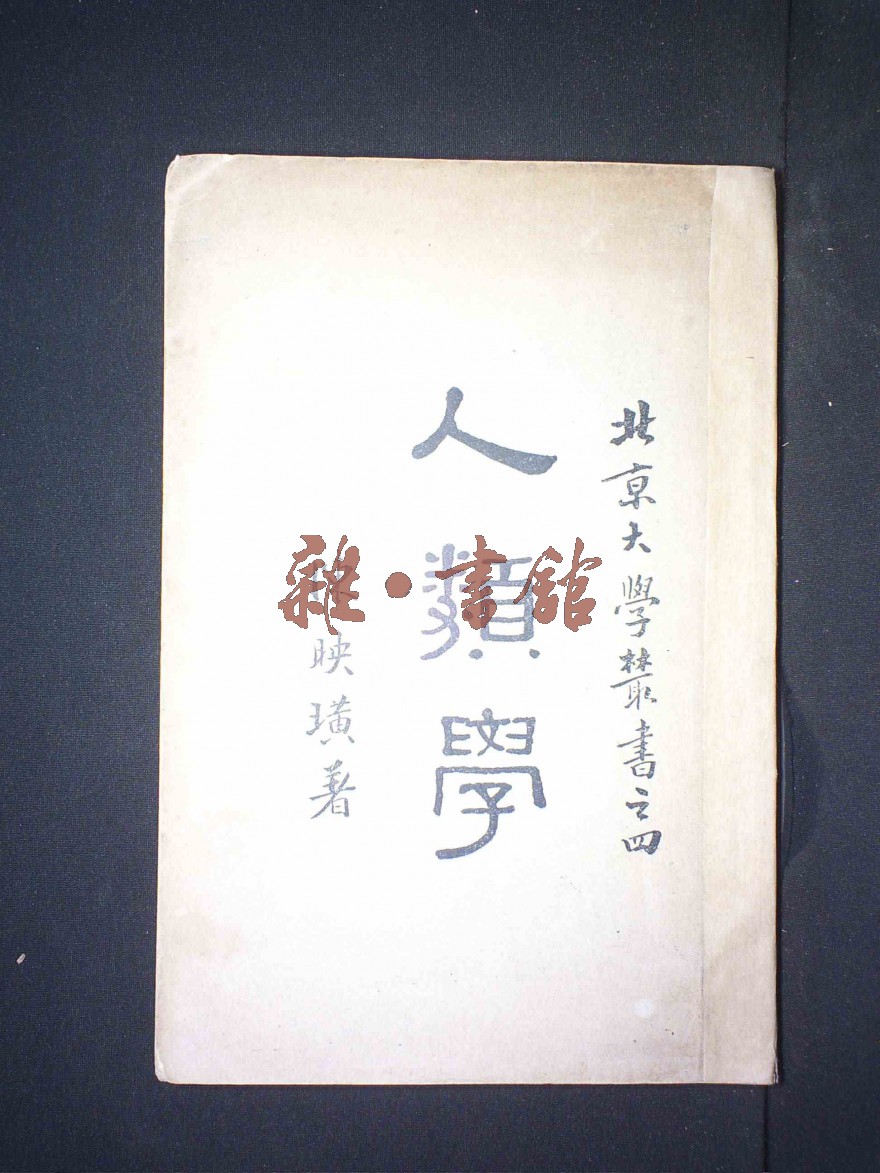 北京大學叢書之四
人類學
映璜著
雜·書館